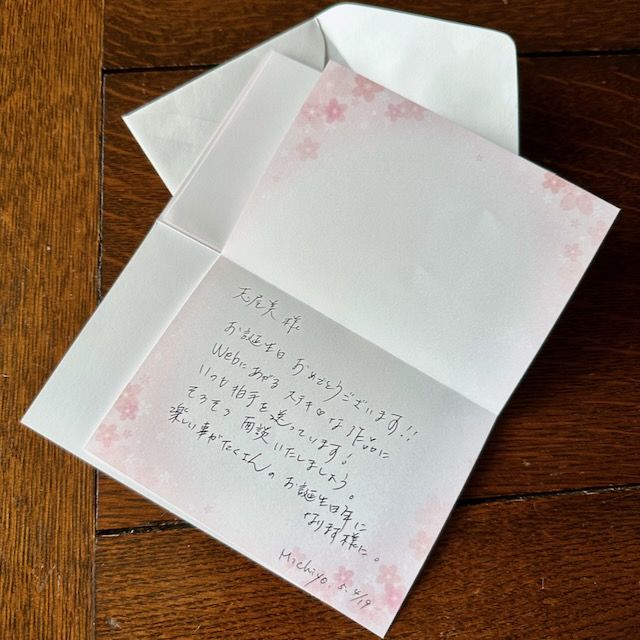 様
お誕生日 おめでとうございます!!
Webにあがる ステキ♡な作品に
いつも拍手を送っています!
そろそろ 面談いたしましょう。
楽しい事がたくさんの お誕生日年に
なります様に。
Michiyo 5.4/19